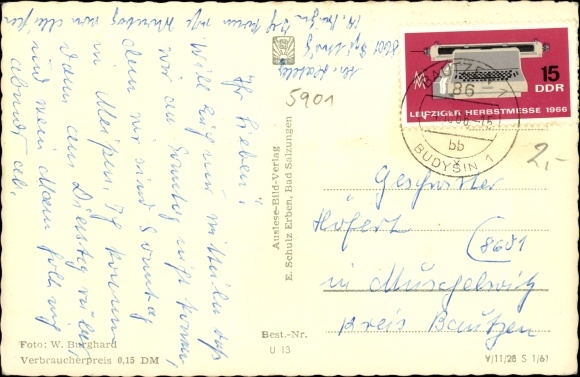 Ihr Lieben!
Will Euch nur mitteilen daß
wir am Sonntag nicht kommen,
denn wir sind Sonntag
in Meißen. Ich komme
dann am Dienstag
und mein Mann holt mich
abends ab.
8601
5901
Auslese-Bild-Verlag
E. Schulz Erben, Bad Salzungen
Foto: W. Burghard
Verbraucherpreis 0,15 DM
Best.-Nr.
U 13
15
DDR
LEIPZIGER HERBSTMESSE 1966
BAUTZEN
86
bb
BUDYŠIN 1
2,-
Geschwister
Höfert
(8601
in Muschelwitz
Kreis Bautzen
V/11/28 S 1/61